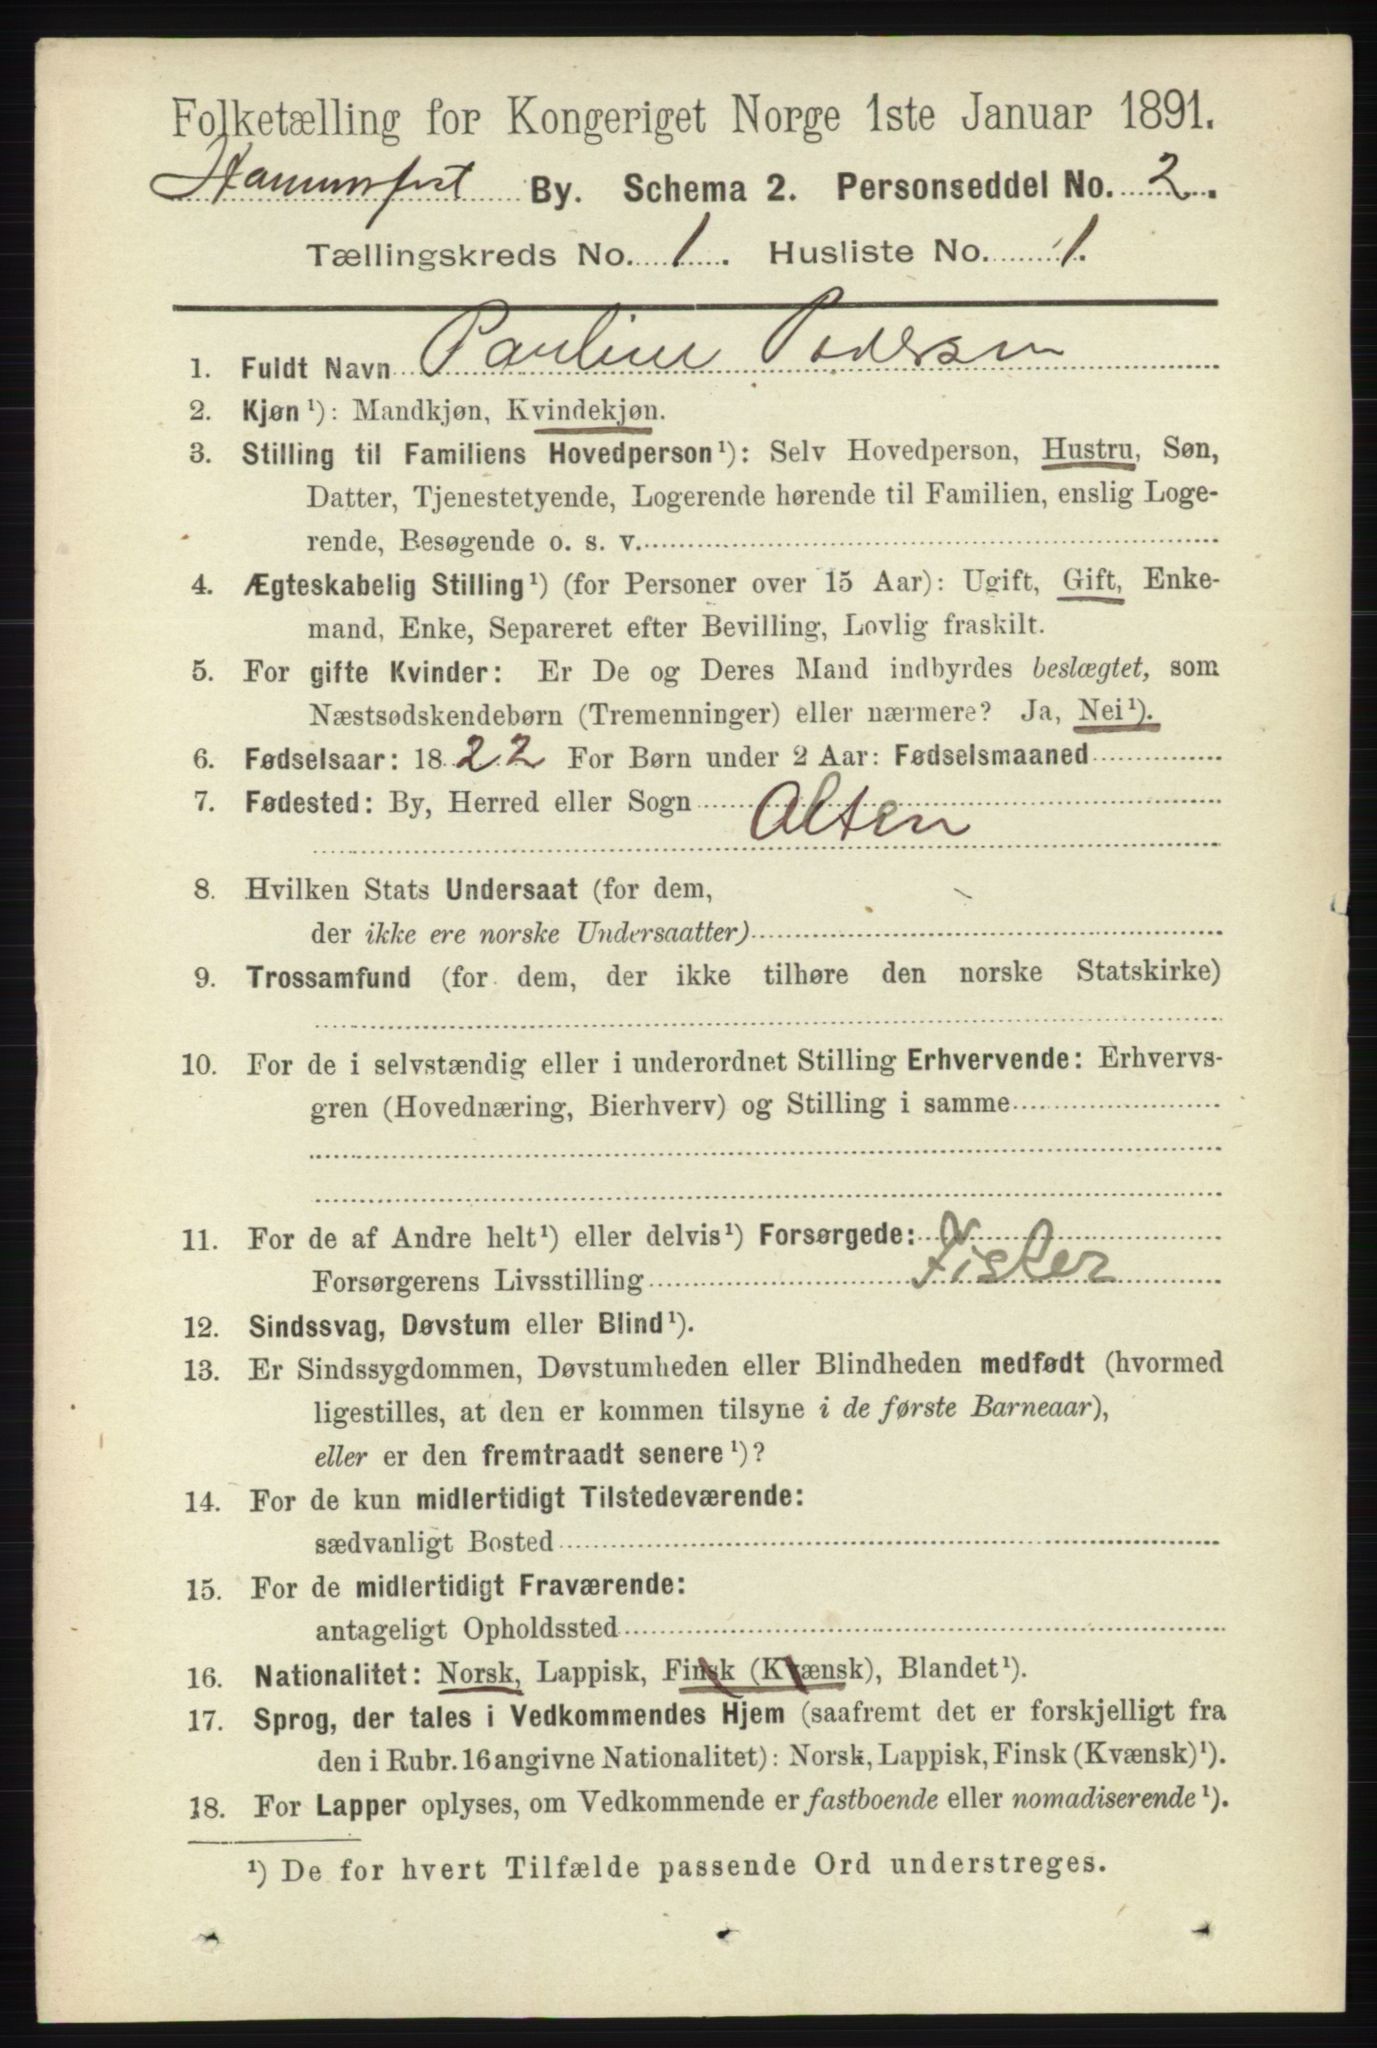 Folketælling for Kongeriget Norge 1ste Januar 1891.
Hammerfest By. Schema 2. Personseddel No. 2.
Tællingskreds No. 1. Husliste No. 1.
1. Fuldt Navn Pauline Pedersen
2. Kjøn ¹): Mandkjøn, Kvindekjøn.
3. Stilling til Familiens Hovedperson ¹): Selv Hovedperson, Hustru, Søn,
Datter, Tjenestetyende, Logerende hørende til Familien, enslig Loge-
rende, Besøgende o. s. v.
4. Ægteskabelig Stilling ¹) (for Personer over 15 Aar): Ugift, Gift, Enke-
mand, Enke, Separeret efter Bevilling, Lovlig fraskilt.
5. For gifte Kvinder: Er De og Deres Mand indbyrdes beslægtet, som
Næstsødskendebørn (Tremenninger) eller nærmere? Ja, Nei ¹).
6. Fødselsaar: 1822 For Børn under 2 Aar: Fødselsmaaned
7. Fødested: By, Herred eller Sogn Alten
8. Hvilken Stats Undersaat (for dem,
der ikke ere norske Undersaatter)
9. Trossamfund (for dem, der ikke tilhøre den norske Statskirke)
10. For de i selvstændig eller i underordnet Stilling Erhvervende: Erhvervs-
gren (Hovednæring, Bierhverv) og Stilling i samme
11. For de af Andre helt ¹) eller delvis ¹) Forsørgede:
Forsørgerens Livsstilling Fisker
12. Sindssvag, Døvstum eller Blind ¹).
13. Er Sindssygdommen, Døvstumheden eller Blindheden medfødt (hvormed
ligestilles, at den er kommen tilsyne i de første Barneaar),
eller er den fremtraadt senere ¹)?
14. For de kun midlertidigt Tilstedeværende:
sædvanligt Bosted
15. For de midlertidigt Fraværende:
antageligt Opholdssted
16. Nationalitet: Norsk, Lappisk, Finsk (Kvænsk), Blandet ¹).
17. Sprog, der tales i Vedkommendes Hjem (saafremt det er forskjelligt fra
den i Rubr. 16 angivne Nationalitet): Norsk, Lappisk, Finsk (Kvænsk) ¹).
18. For Lapper oplyses, om Vedkommende er fastboende eller nomadiserende ¹).
¹) De for hvert Tilfælde passende Ord understreges.